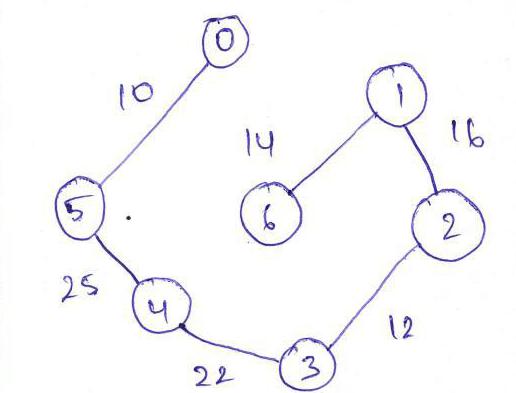 0
10
1
14
16
5
6
2
25
4
12
22
3